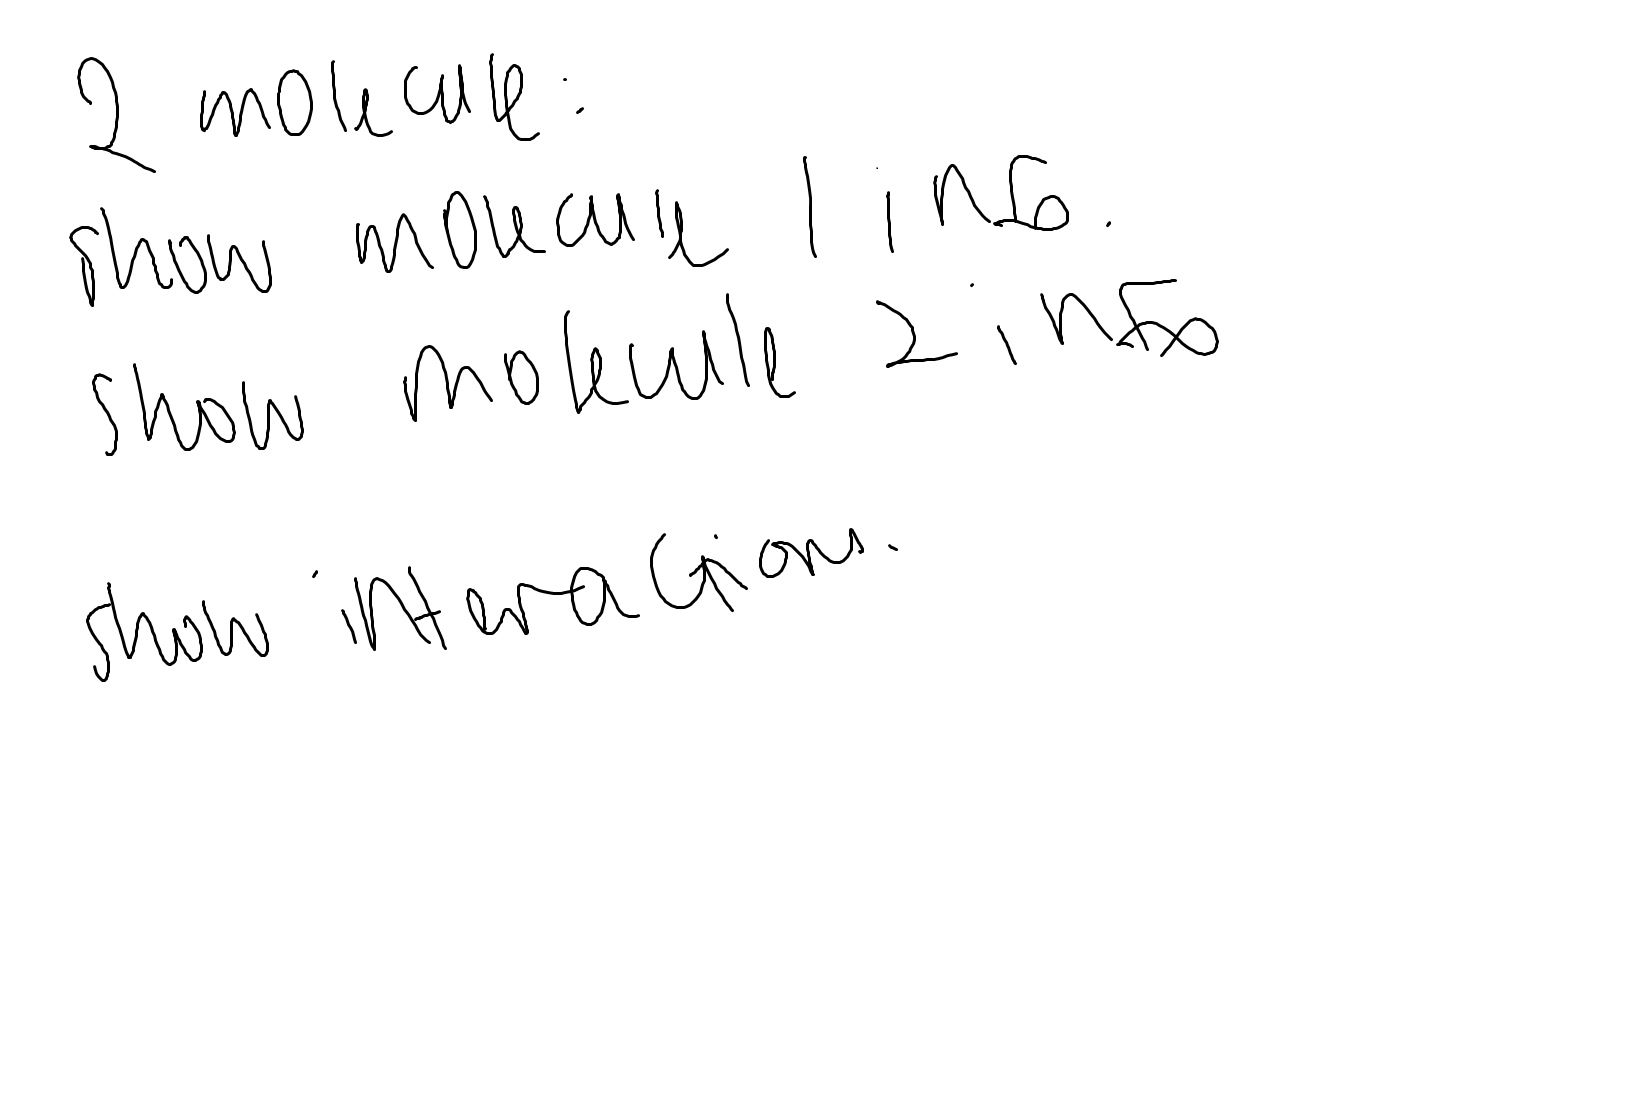 2 molecule:
show molecule 1 info.
show molecule 2 info
show interactions.